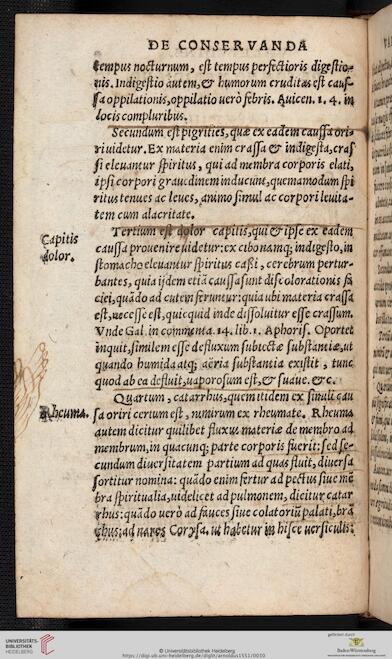 DE CONSERVANDA
tempus nocturnum, est tempus perfectioris digestio-
nis. Indigestio autem, & humorum cruditas est caus-
sa oppilationis, oppilatio verò febris. Auicen. 1. 4. in
locis compluribus.
Secundum est pigrities, quæ ex eadem caussa ori-
ri videtur. Ex materia enim crassa & indigesta, cras
si eleuantur spiritus, qui ad membra corporis elati,
ipsi corpori grauedinem inducunt, quemadmodum spi
ritus tenues ac leues, animo simul ac corpori leuita-
tem cum alacritate.
Capitis
dolor.
Tertium est dolor capitis, qui & ipse ex eadem
caussa prouenire uidetur: ex cibo namq; indigesto, in
stomacho eleuantur spiritus caßi, cerebrum pertur-
bantes, quia ijdem etiā caussa sunt discolorationis fa
ciei, quādo ad cutem feruntur: quia ubi materia crassa
est, necesse est, quicquid inde dissoluitur esse crassum.
Vnde Gal. in commenta. 14. lib. 1. Aphoris. Oportet
inquit, similem esse defluxum subiectæ substantiæ, ut
quando humida atq; aëria substantia existit, tunc
quod ab ea defluit, uaporosum est, & suaue. & c.
Rheuma.
Quartum, catarrhus, quem itidem ex simili cau
sa oriri certum est, nimirum ex rheumate. Rheuma
autem dicitur quilibet fluxus materiæ de membro ad
membrum, in quacunq; parte corporis fuerit: sed se-
cundum diuersitatem partium ad quas fluit, diuersa
sortitur nomina: quādo enim fertur ad pectus siue mē
bra spiritualia, uidelicet ad pulmonem, dicitur catar
rhus: quādo verò ad fauces siue colatoriū palati, brā
chus: ad nares Coryza. ut habetur in hisce versiculis:
UNIVERSITÄTS-
BIBLIOTHEK
HEIDELBERG
© Universitätsbibliothek Heidelberg
https://digi.ub.uni-heidelberg.de/diglit/arnoldus1551/0030
gefördert durch
Baden-Württemberg